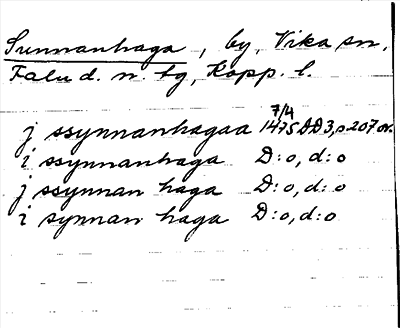 Sunnanhaga, by, Vika sn,
Falu d. n. tg, Kopp. l.
7/4
j ssynnanhagaa 1475 DD3, p 207 or.
i ssynnanhaga D:o, d:o
j ssynnan haga D:o, d:o
i synnan haga D:o, d:o